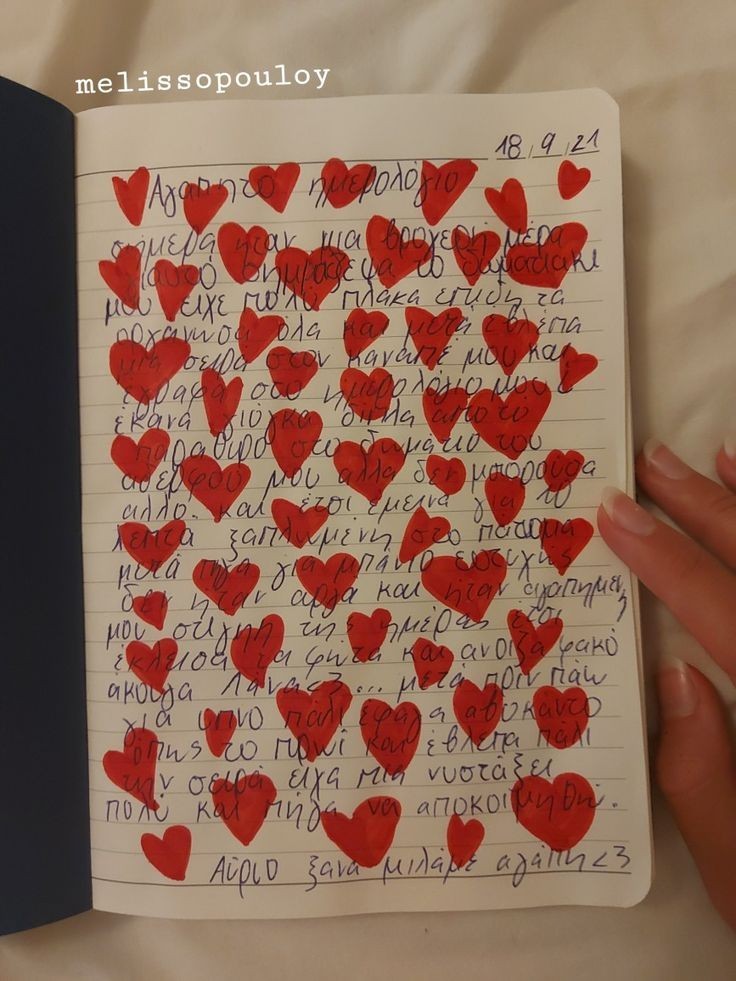 melissopouloy
18 9 21
Αγαπητο ημερολόγιο
σήμερα ήταν μια βροχερή μέρα
γιαυτό συμμάζεψα το δωματιακι
μου είχε πολύ πλάκα επιδη τα
οργάνωσα όλα και μετά έβλεπα
μια σειρά στον καναπέ μου και
έγραφα στο ημερολόγιο μου
έκανα γιόγκα δίπλα απο το
παράθυρο στο δωμάτιο του
αδερφού μου αλλα δεν μπορουσα
αλλο. και έτσι εμεινα για 10
λεπτα ξαπλωμένη στο πάτωμα
μετά πήγα για μπάνιο ευτυχώς
δεν ηταν αργα και ήταν αγαπημένη
μου στιγμή της ημέρας έτσι
έκλεισα τα φωτα και ανοιξα φακό
ακουγα Λάνα<3... μετά πριν πάω
για υπνο πάλι έφαγα αβοκαντο
όπως το πρωί και έβλεπα πάλι
την σειρά είχα μια νυστάξει
πολύ και πήγα να αποκοιμηθώ.
Αύριο ξανα μιλάμε αγάπη<3